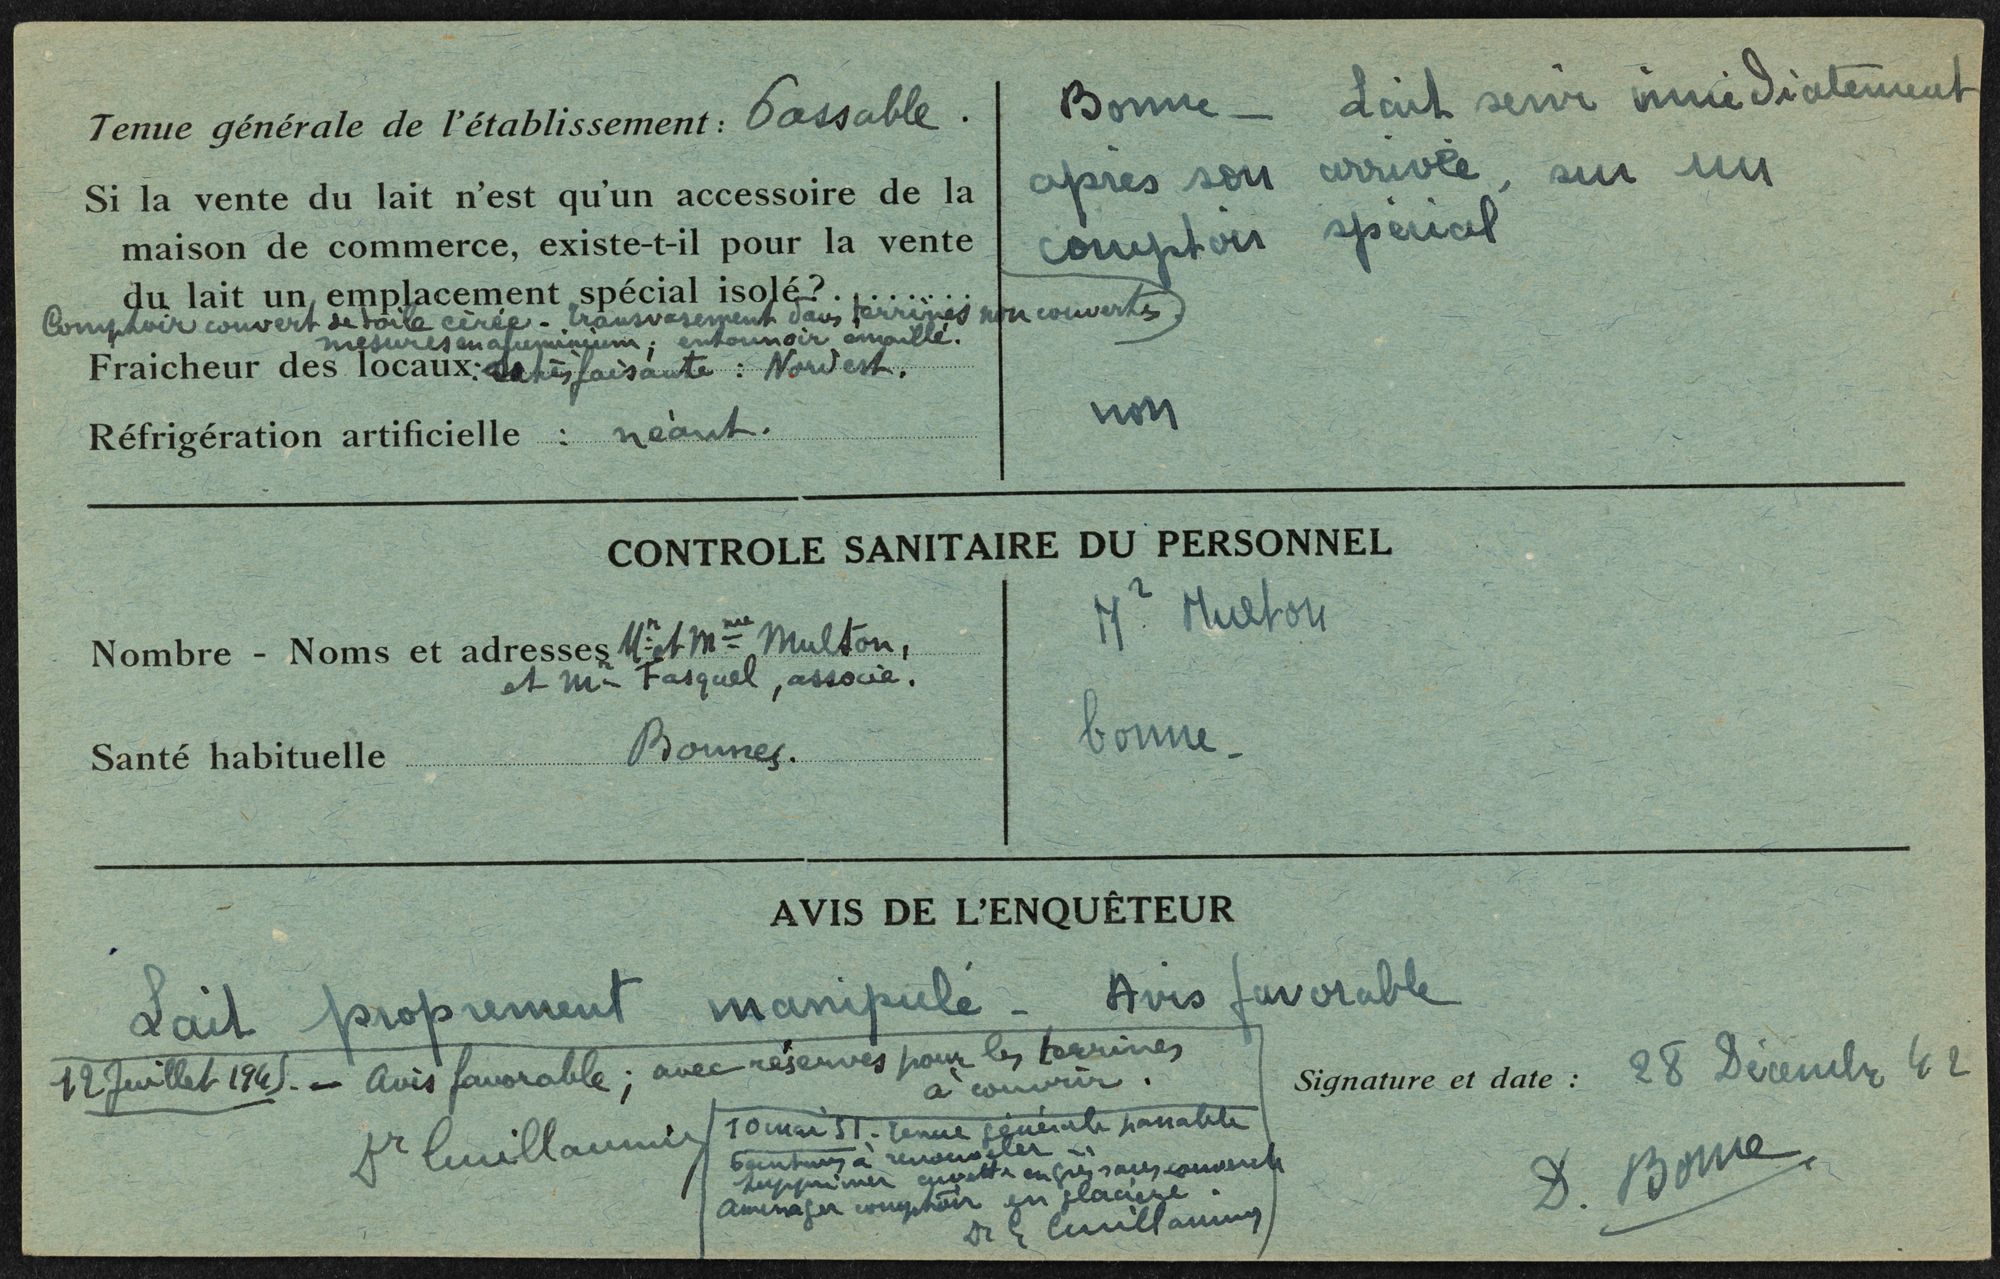 Tenue générale de l'établissement : Passable.
Si la vente du lait n'est qu'un accessoire de la
maison de commerce, existe-t-il pour la vente
du lait un emplacement spécial isolé ? . . . . . . .
Comptoir couvert de toile cirée - transvasement dans terrines non couvertes
mesures en aluminium ; entonnoir émaillé.
Fraicheur des locaux : satisfaisante : Nord est.
Réfrigération artificielle : néant.
Bonne - Lait servi immédiatement
après son arrivée, sur un
comptoir spécial
non
CONTROLE SANITAIRE DU PERSONNEL
Nombre - Noms et adresses Mr et Mme Multon,
et Mr Fasquel, associé.
Santé habituelle Bonnes.
Mr Multon
bonne -
AVIS DE L'ENQUÊTEUR
Lait proprement manipulé - Avis favorable
12 Juillet 1945. - Avis favorable ; avec réserves pour les terrines
à couvrir.
Dr Guillaumin
10 mai 51 - Tenue générale passable
Peintures à renouveler -
Supprimer cuvette en grès sans couvercle
Aménager comptoir en glacière.
Dr G Guillaumin
Signature et date : 28 Décembre 42
D. Bonne